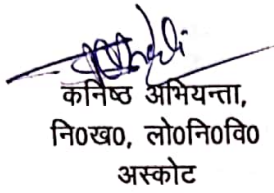 कनिष्ठ अभियन्ता,
नि0ख0, लो0नि0वि0
अस्कोट